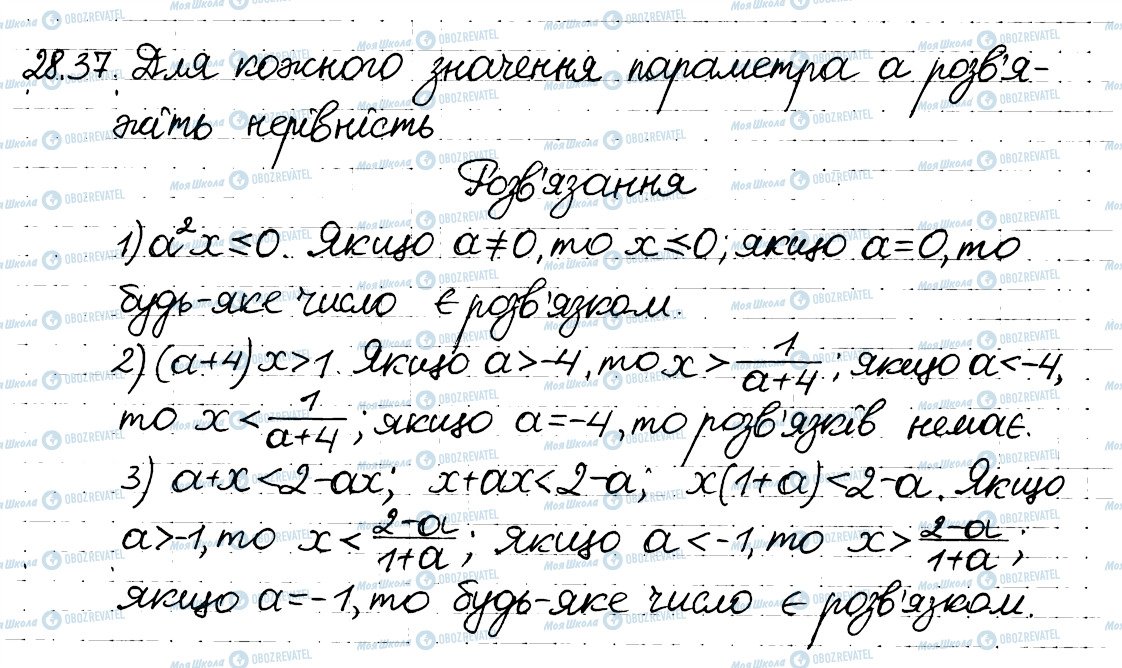 28.37. Для кожного значення параметра а розв'я-
жіть нерівність
Розв'язання
1) a²x≤0. Якщо a≠0, то x≤0; якщо a=0, то
будь-яке число є розв'язком.
2) (a+4)x>1. Якщо a>-4, то x > 1/(a+4); якщо a<-4,
то x < 1/(a+4); якщо a=-4, то розв'язків немає.
3) a+x<2-ax; x+ax<2-a; x(1+a)<2-a. Якщо
a>-1, то x < (2-a)/(1+a); якщо a<-1, то x > (2-a)/(1+a);
якщо a=-1, то будь-яке число є розв'язком.